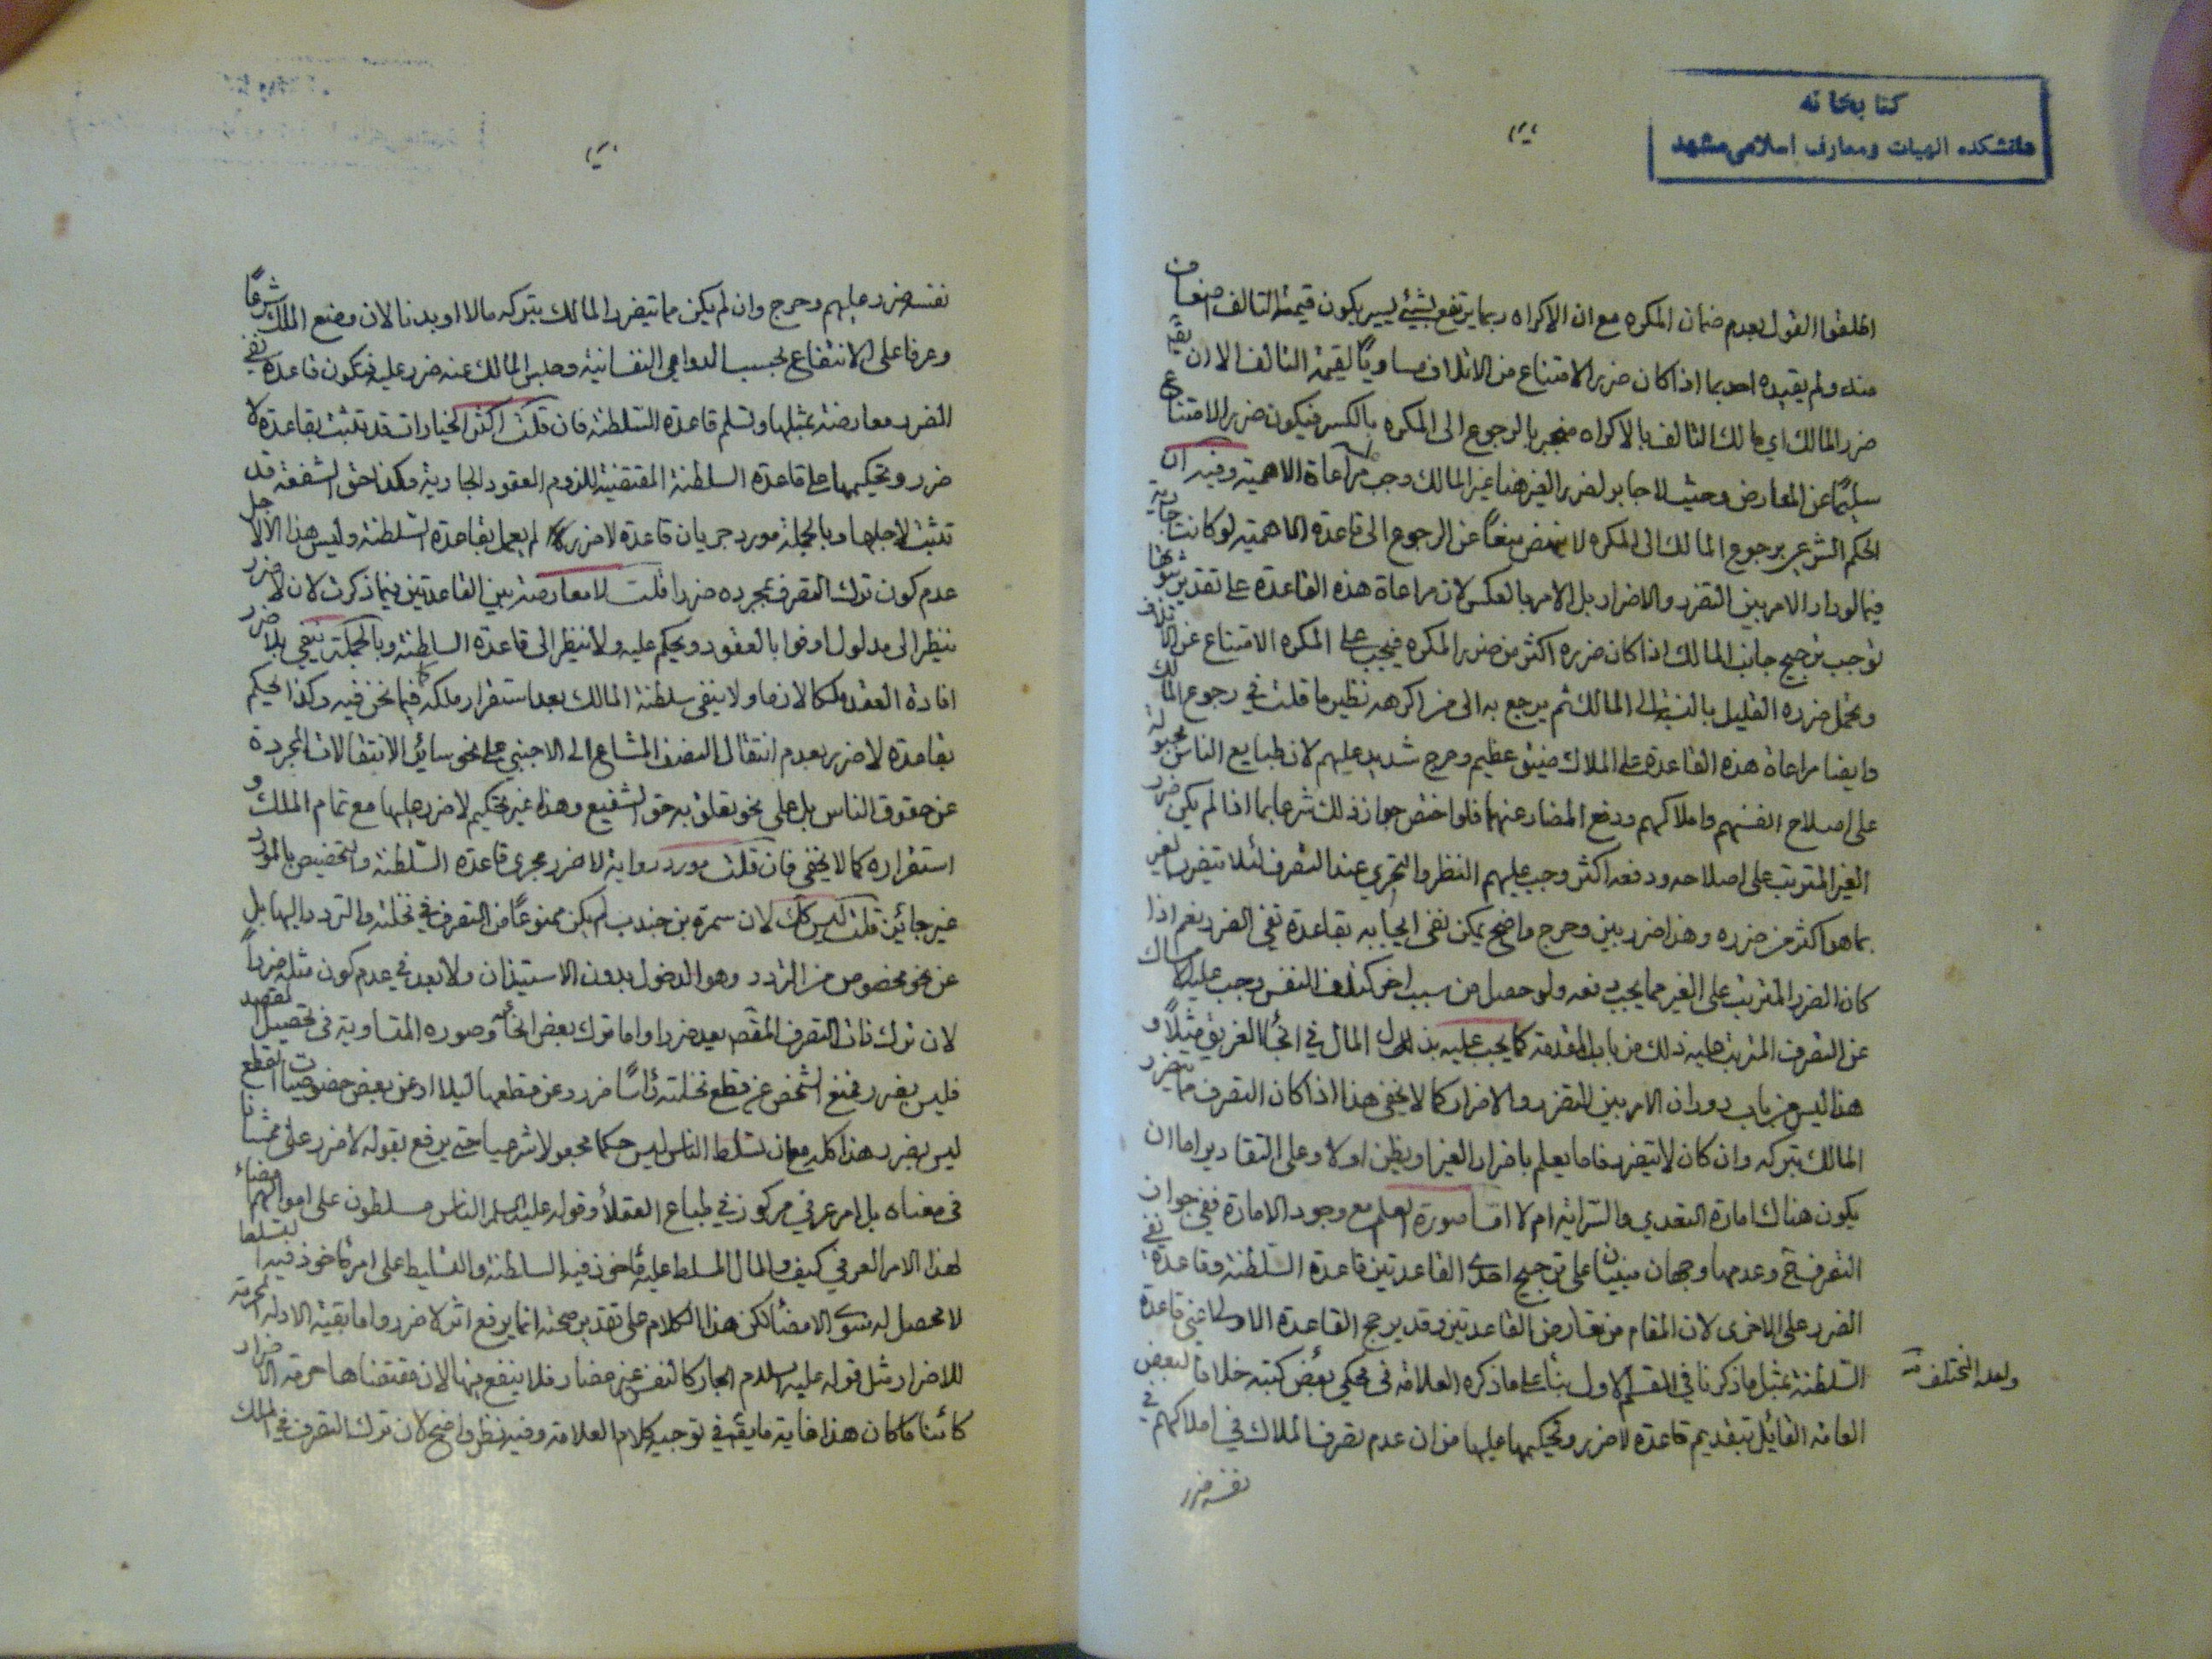 كتابخانه
دانشكده الهيات ومعارف اسلامی مشهد
اطلقوا القول بعدم ضمان المكره مع ان الاكراه ربما يرتفع بشيئ يسير يكون قيمة التالف اضعاف
منه ولم يقيده احد بما اذا كان ضرر الامتناع من الاتلاف مساويًا لقيمة التالف الا ان يقٓ
ضرر المالك اي مالك التالف بالاكراه منجبر بالرجوع الى المكره بالكسر فيكون ضرر الامتناع
سليمًا عن المعارض وحيث لا جابر لضرر الغير هنا غير المالك وجب مراعاة الاهمية وفيه ان
الحكم الشرعي برجوع المالك الى المكره لا ينهض منعًا عن الرجوع الى قاعدة الاهمية لو كانت جارية
فيما لو دار الامر بين التضرر والاضرار بل الامر بالعكس لان مراعاة هذه القاعدة على تقدير ثبوتها
توجب ترجيح جانب المالك اذا كان ضرره اكثر من ضرر المكره فيجب على المكره الامتناع عن الاتلاف
وتحمل ضرره القليل بالنسبة الى المالك ثم يرجع به الى من اكرهه نظير ما قلت في رجوع المالك
وايضا مراعاة هذه القاعدة على الملاك ضيق عظيم وحرج شديد عليهم لان طبايع الناس مجبولة
على اصلاح انفسهم واملاكهم ودفع المضار عنهما فلو اختص جواز ذلك شرعا بما اذا لم يكن ضرر
الغير المترتب على اصلاحه ودفعه اكثر وجب عليهم النظر والتحري عند التصرف لئلا يتضرر الغير
بما هو اكثر من ضرره وهذا ضرر بين وحرج واضح يمكن نفى ايجابه بقاعدة نفي الضرر نعم اذا
كان الضرر المترتب على الغير مما يجب دفعه ولو حصل من سبب اخر كتلف النفس وجب عليه الامساك
عن التصرف المترتب عليه ذلك من باب المقدمة كما يجب عليه بذل المال في انجاء الغريق مثلًا و
هذا ليس من باب دوران الامر بين التضرر والاضرار كما لا يخفى هذا اذا كان التصرف مما يتضرر
المالك بتركه وان كان لا يتضرر فاما يعلم باضرار الغير او يظن او لا وعلى التقادير اما ان
يكون هناك امارة التعدي والسراية ام لا اما صورة العلم مع وجود الامارة ففي جواز
التصرف ح وعدمها وجهان مبنيان على ترجيح احدى القاعدتين قاعدة السلطنة وقاعدة نفي
الضرر على الاخرى لان المقام من تعارض القاعدتين وقد يرجح القاعدة الاولى اعني قاعدة
السلطنة بمثل ما ذكرنا في القسم الاول بناء على ما ذكره العلامة فى محكي بعض كتبه خلافا لبعض
ولعله المختلف
العامة القائل بتقديم قاعدة لا ضرر وتحكيمها عليها من ان عدم تصرف الملاك في املاكهم في
نفسه ضرر
نفسه ضرر عليهم وحرج وان لم يكن مما يتضرر المالك بتركه مالا او بدنا لان منع الملك شرعًا
وعرفا على الانتفاع بحسب الدواعي النفسانية وحبس المالك عنه ضرر عليه فتكون قاعدة نفي
الضرر معارضة بمثلها وتسلم قاعدة السلطنة فان قلت اكثر الخيارات قد تثبت بقاعدة لا
ضرر وتحكيمها على قاعدة السلطنة المقتضية للزوم العقود الجارية وكذا حق الشفعة قد
تثبت لاجلها وبالجملة مورد جريان قاعدة لا ضرر لم يعمل بقاعدة السلطنة وليس هذا الا لاجل
عدم كون ترك التصرف بمجرده ضررا قلت لا معارضة بين القاعدتين فيما ذكرت لان لا ضرر
ينظر الى مدلول اوفوا بالعقود ويحكم عليه ولا ينظر الى قاعدة السلطنة وبالجملة ينفي بلا ضرر
افادة العقد ملكا لازما ولا ينفى سلطنة المالك بعد استقرار ملكه كما فيما نحن فيه وكذا يحكم
بقاعدة لا ضرر بعدم انتقال النصف المشاع الى الاجنبي على نحو سائر الانتقالات المجردة
عن حقوق الناس بل على نحو يتعلق به حق الشفيع وهذا غير تحكيم لا ضرر عليها مع تمام الملك و
استقراره كما لا يخفى فان قلت مورد رواية لا ضرر مجرى قاعدة السلطنة والتخصيص بالمورد
غير جائز قلت ليس كك لان سمرة بن جندب لم يكن ممنوعًا من التصرف في نخلته والتردد اليها بل
عن نحو مخصوص من التردد وهو الدخول بدون الاستيذان ولا بعد في عدم كون مثله ضررًا
لان ترك ذات التصرف المقصود يعد ضررا واما ترك بعض انحائه وصوره المتساوية فى تحصيل المقصد
فليس بضرر فمنع الشخص عن قطع نخلته رأسًا ضرر وعن قطعها ليلا او عن بعض خصوصيات القطع
ليس بضرر هذا كله مع ان تسلط الناس ليس حكما مجعولا شرعيا حتى يرفع بقوله لا ضرر على ما مشينا
فى معناه بل امر عرفي مركوز في طباع العقلاء وقوله عليه السلم الناس مسلطون على اموالهم امضاء
لهذا الامر العرفي كيف والمال المسلط عليه مأخوذ فيه السلطنة والتسليط على امر مأخوذ فيه التسلط
لا محصل له سوى الامضاء لكن هذا الكلام على تقدير صحته انما يرفع اثر لا ضرر واما بقية الادلة المحرمة
للاضرار مثل قوله عليه السلام الجار كالنفس غير مضار فلا ينفع فيها لان مقتضاها حرمة الاضرار
كائنا ما كان هذا غاية ما يقٓ في توجيه كلام العلامة وفيه نظر واضح لان ترك التصرف في الملك